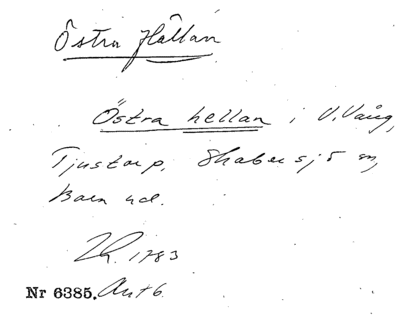 Östra Hållan
Östra hellan i V. Vång,
Tjustorp, Skabersjö sn,
Bara hd.
1783
Nr 6385. Ant 6.